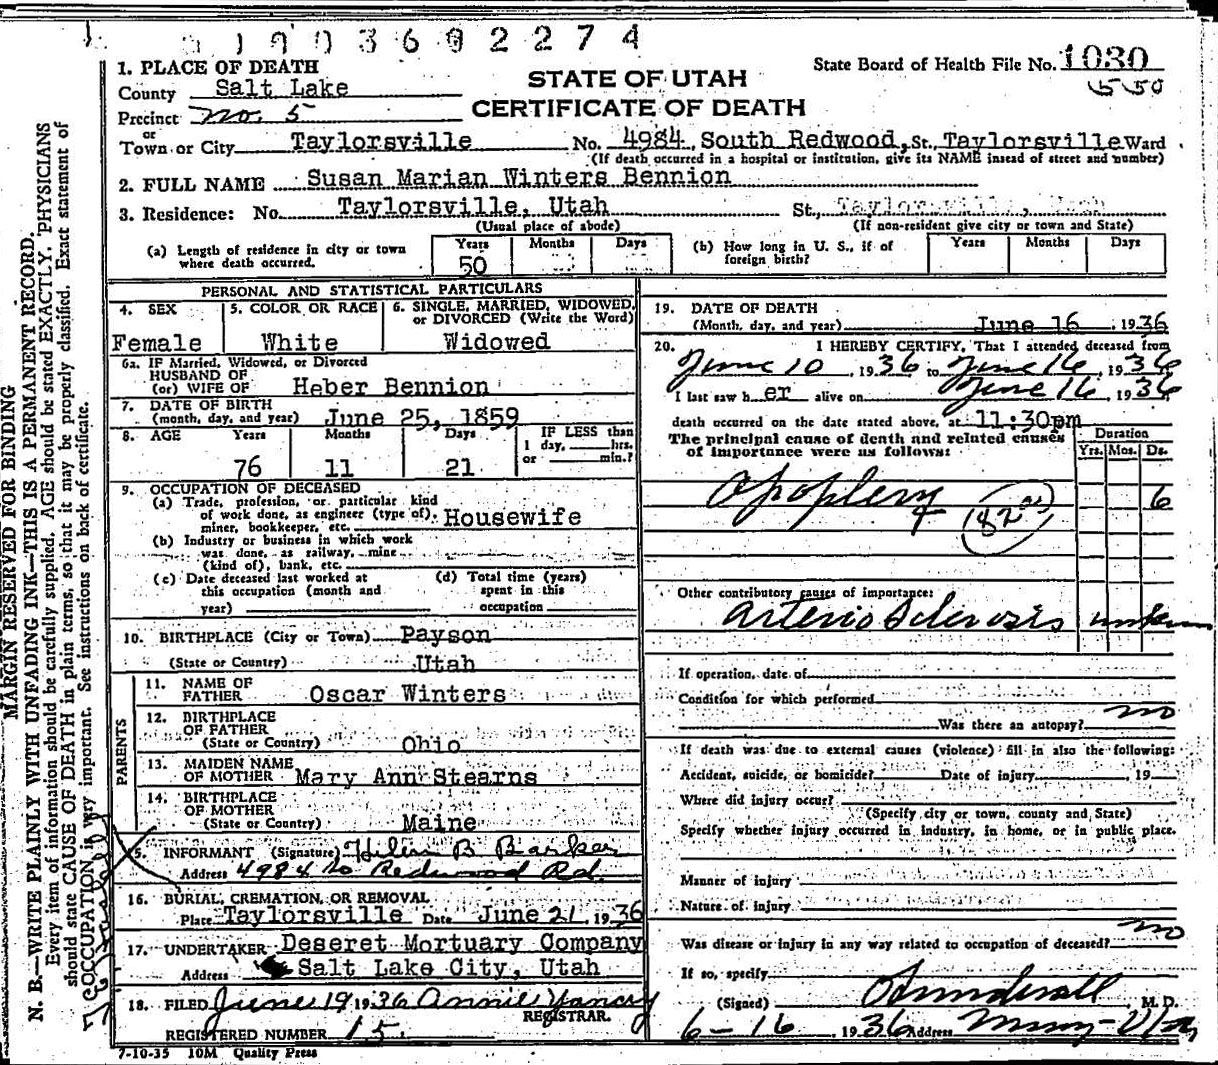 3190360 2274
1. PLACE OF DEATH
County Salt Lake
Precinct No. 5
or
Town or City Taylorsville No. 4984 South Redwood, St, Taylorsville Ward
STATE OF UTAH
CERTIFICATE OF DEATH
State Board of Health File No. 1030
550
(If death occurred in a hospital or institution, give its NAME insead of street and number)
2. FULL NAME Susan Marian Winters Bennion
3. Residence: No. Taylorsville, Utah St., Taylorsville, Utah
(Usual place of abode) (If non-resident give city or town and State)
(a) Length of residence in city or town where death occurred. Years 50 Months Days
(b) How long in U. S., if of foreign birth? Years Months Days
PERSONAL AND STATISTICAL PARTICULARS
4. SEX Female
5. COLOR OR RACE White
6. SINGLE, MARRIED, WIDOWED, or DIVORCED (Write the Word) Widowed
6a. IF Married, Widowed, or Divorced
HUSBAND OF
(or) WIFE OF Heber Bennion
7. DATE OF BIRTH
(month, day, and year) June 25, 1859
8. AGE Years 76 Months 11 Days 21
IF LESS than
1 day, hrs.
or min.?
9. OCCUPATION OF DECEASED
(a) Trade, profession, or particular kind
of work done, as engineer (type of), Housewife
miner, bookkeeper, etc.
(b) Industry or business in which work
was done, as railway, mine
(kind of), bank, etc.
(c) Date deceased last worked at
this occupation (month and
year)
(d) Total time (years)
spent in this
occupation
10. BIRTHPLACE (City or Town) Payson
(State or Country) Utah
PARENTS
11. NAME OF
FATHER Oscar Winters
12. BIRTHPLACE
OF FATHER
(State or Country) Ohio
13. MAIDEN NAME
OF MOTHER Mary Ann Stearns
14. BIRTHPLACE
OF MOTHER
(State or Country) Maine
15. INFORMANT (Signature) Helen B Barker
Address 4984 So Redwood Rd.
16. BURIAL, CREMATION, OR REMOVAL
Place Taylorsville Date June 21, 1936
17. UNDERTAKER Deseret Mortuary Company
Address Salt Lake City, Utah
18. FILED June 19 1936 Annie Yancey
REGISTRAR.
REGISTERED NUMBER 15.
7-10-35 10M Quality Press
19. DATE OF DEATH
(Month, day, and year) June 16, 1936
20. I HEREBY CERTIFY, That I attended deceased from
June 10, 1936 to June 16, 1936
I last saw her alive on June 16, 1936
death occurred on the date stated above, at 11:30pm
The principal cause of death and related causes
of importance were as follows:
Duration
Yrs. Mos. Ds.
Apoplexy 6
82
Other contributory causes of importance:
Arterio Sclerosis unknown
If operation, date of
Condition for which performed
Was there an autopsy? no
If death was due to external causes (violence) fill in also the following:
Accident, suicide, or homicide? Date of injury, 19
Where did injury occur?
(Specify city or town, county and State)
Specify whether injury occurred in industry, in home, or in public place.
Manner of injury
Nature of injury
Was disease or injury in any way related to occupation of deceased? no
If so, specify
(Signed) M. D.
6-16 1936 Address
MARGIN RESERVED FOR BINDING
N. B.—WRITE PLAINLY WITH UNFADING INK—THIS IS A PERMANENT RECORD.
Every item of information should be carefully supplied. AGE should be stated EXACTLY. PHYSICIANS
should state CAUSE OF DEATH in plain terms, so that it may be properly classified. Exact statement of
OCCUPATION is very important. See instructions on back of certificate.